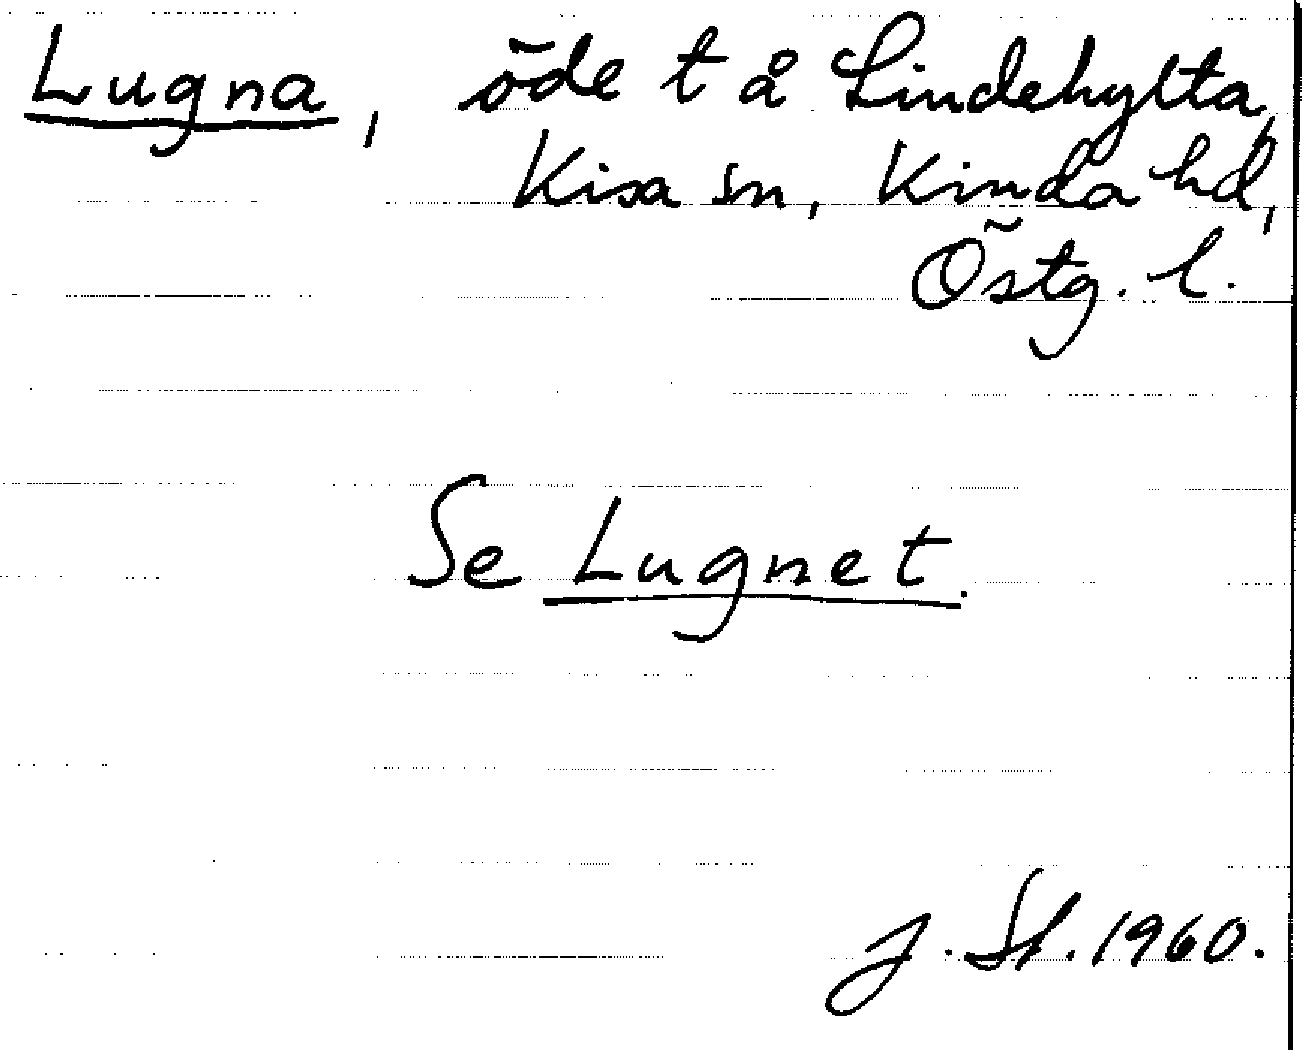 Lugna, öde t å Lindehylta,
Kisa sn, Kinda hd,
Östg. l.
Se Lugnet.
J. St. 1960.